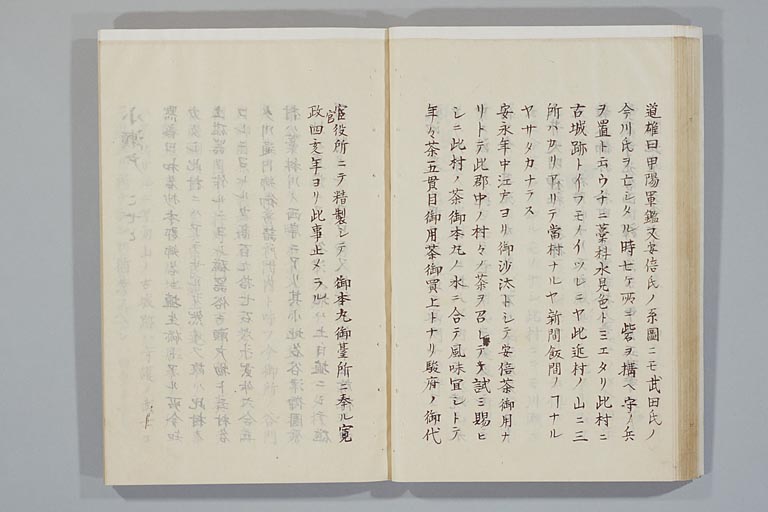 道雄曰甲陽軍鑑又安倍氏ノ系圖ニモ武田氏ノ
今川氏ヲ亡シタル時七ケ所ニ砦ヲ構ヘ守ノ兵
ヲ置トエウチニ藁科水見色トミエタリ此村ニ
古城跡トイフモノイツレニヤ此近村ノ山ニ三
所ハカリアリテ當村ナルヤ新間飯間ノナル
ヤサタカナラス
安永年中江戸ヨリ御沙汰トシテ安倍茶御用ナ
リトテ此郡中ノ村々ノ茶ヲ召レテ試ミ賜ヒ
シニ此村ノ茶御本丸ノ水ニ合テ風味宜シトテ
年々茶五貫目御用茶御買上トナリ駿府ノ御代
官役所ニテ精製シテ 御本丸御臺所ニ奉ル寛
政四亥年ヨリ此事止メラル
官